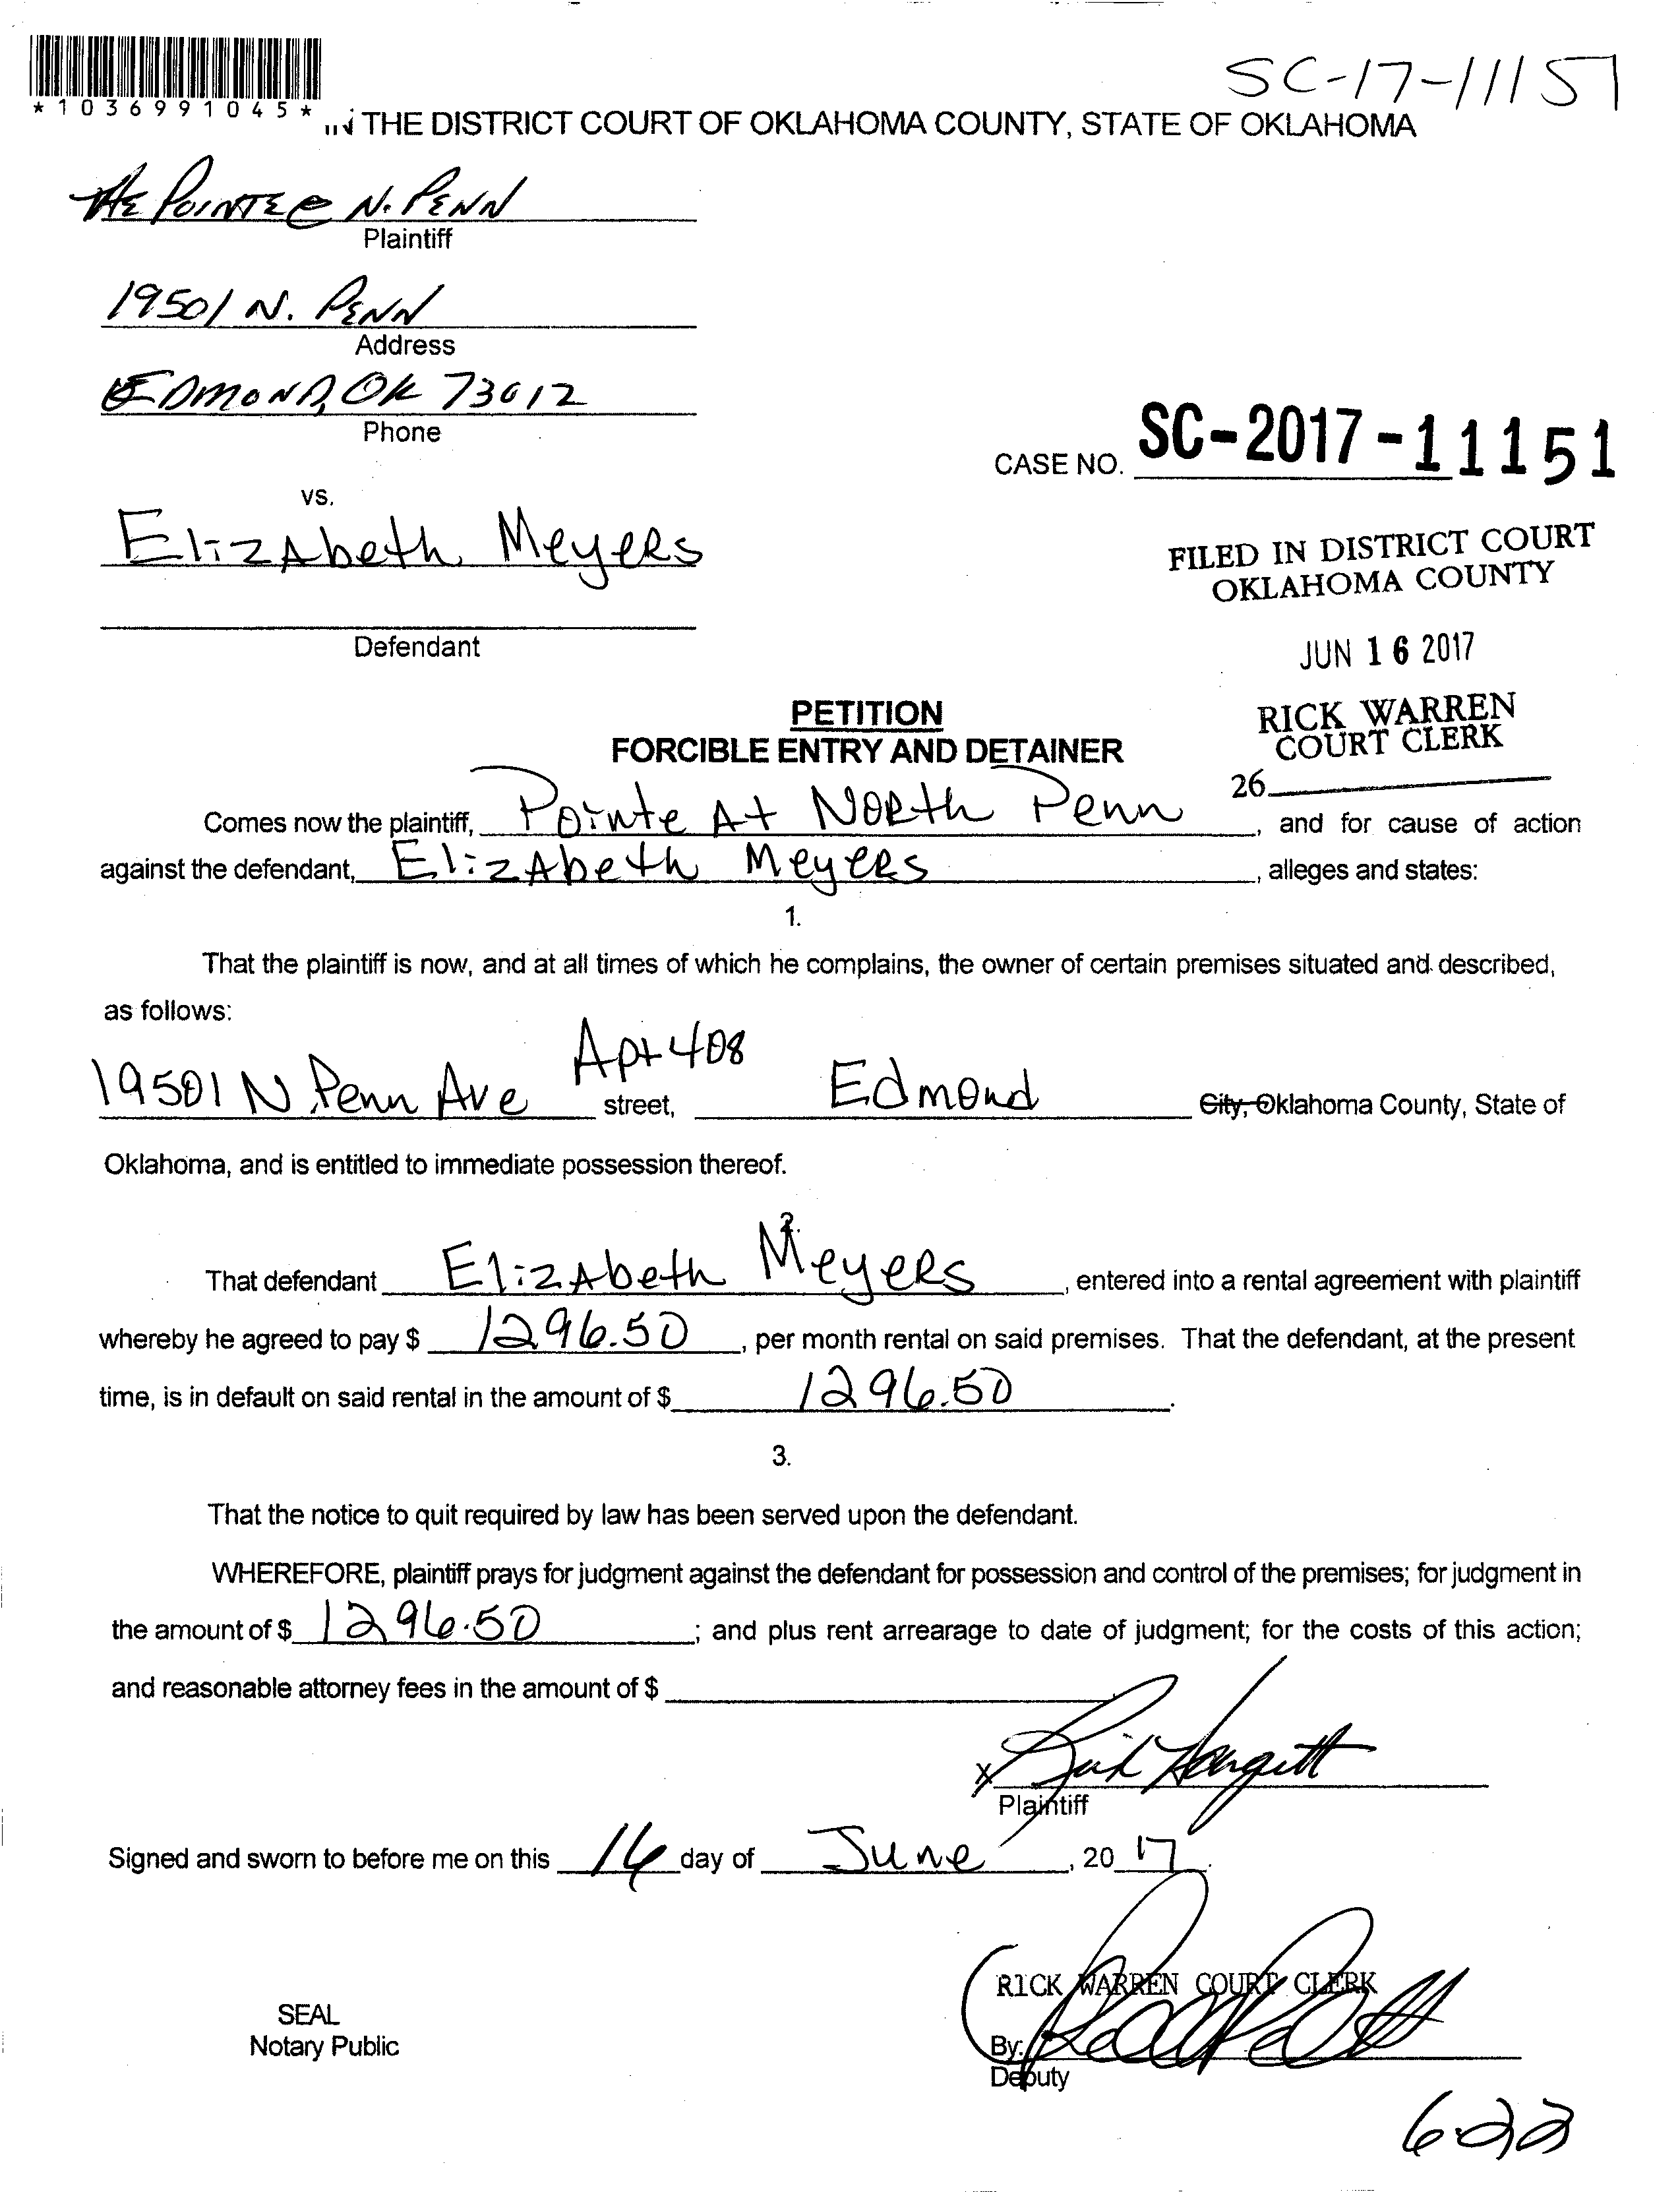 SC-17-11151
*1036991045*
IN THE DISTRICT COURT OF OKLAHOMA COUNTY, STATE OF OKLAHOMA
THE POINTE @ N. PENN
Plaintiff
19501 N. PENN
Address
EDMOND, OK 73012
Phone
CASE NO. SC-2017-11151
vs.
Elizabeth Meyers
FILED IN DISTRICT COURT
OKLAHOMA COUNTY
Defendant
JUN 16 2017
PETITION
RICK WARREN
COURT CLERK
FORCIBLE ENTRY AND DETAINER
26
Comes now the plaintiff, Pointe At North Penn, and for cause of action
against the defendant, Elizabeth Meyers, alleges and states:
1.
That the plaintiff is now, and at all times of which he complains, the owner of certain premises situated and described,
as follows:
Apt 408
19501 N Penn Ave street, Edmond City, Oklahoma County, State of
Oklahoma, and is entitled to immediate possession thereof.
2.
That defendant Elizabeth Meyers, entered into a rental agreement with plaintiff
whereby he agreed to pay $ 1296.50, per month rental on said premises. That the defendant, at the present
time, is in default on said rental in the amount of $ 1296.50.
3.
That the notice to quit required by law has been served upon the defendant.
WHEREFORE, plaintiff prays for judgment against the defendant for possession and control of the premises; for judgment in
the amount of $ 1296.50; and plus rent arrearage to date of judgment; for the costs of this action;
and reasonable attorney fees in the amount of $
X
Plaintiff
Signed and sworn to before me on this 16 day of June, 2017.
RICK WARREN COURT CLERK
SEAL
Notary Public
By:
Deputy
6-22